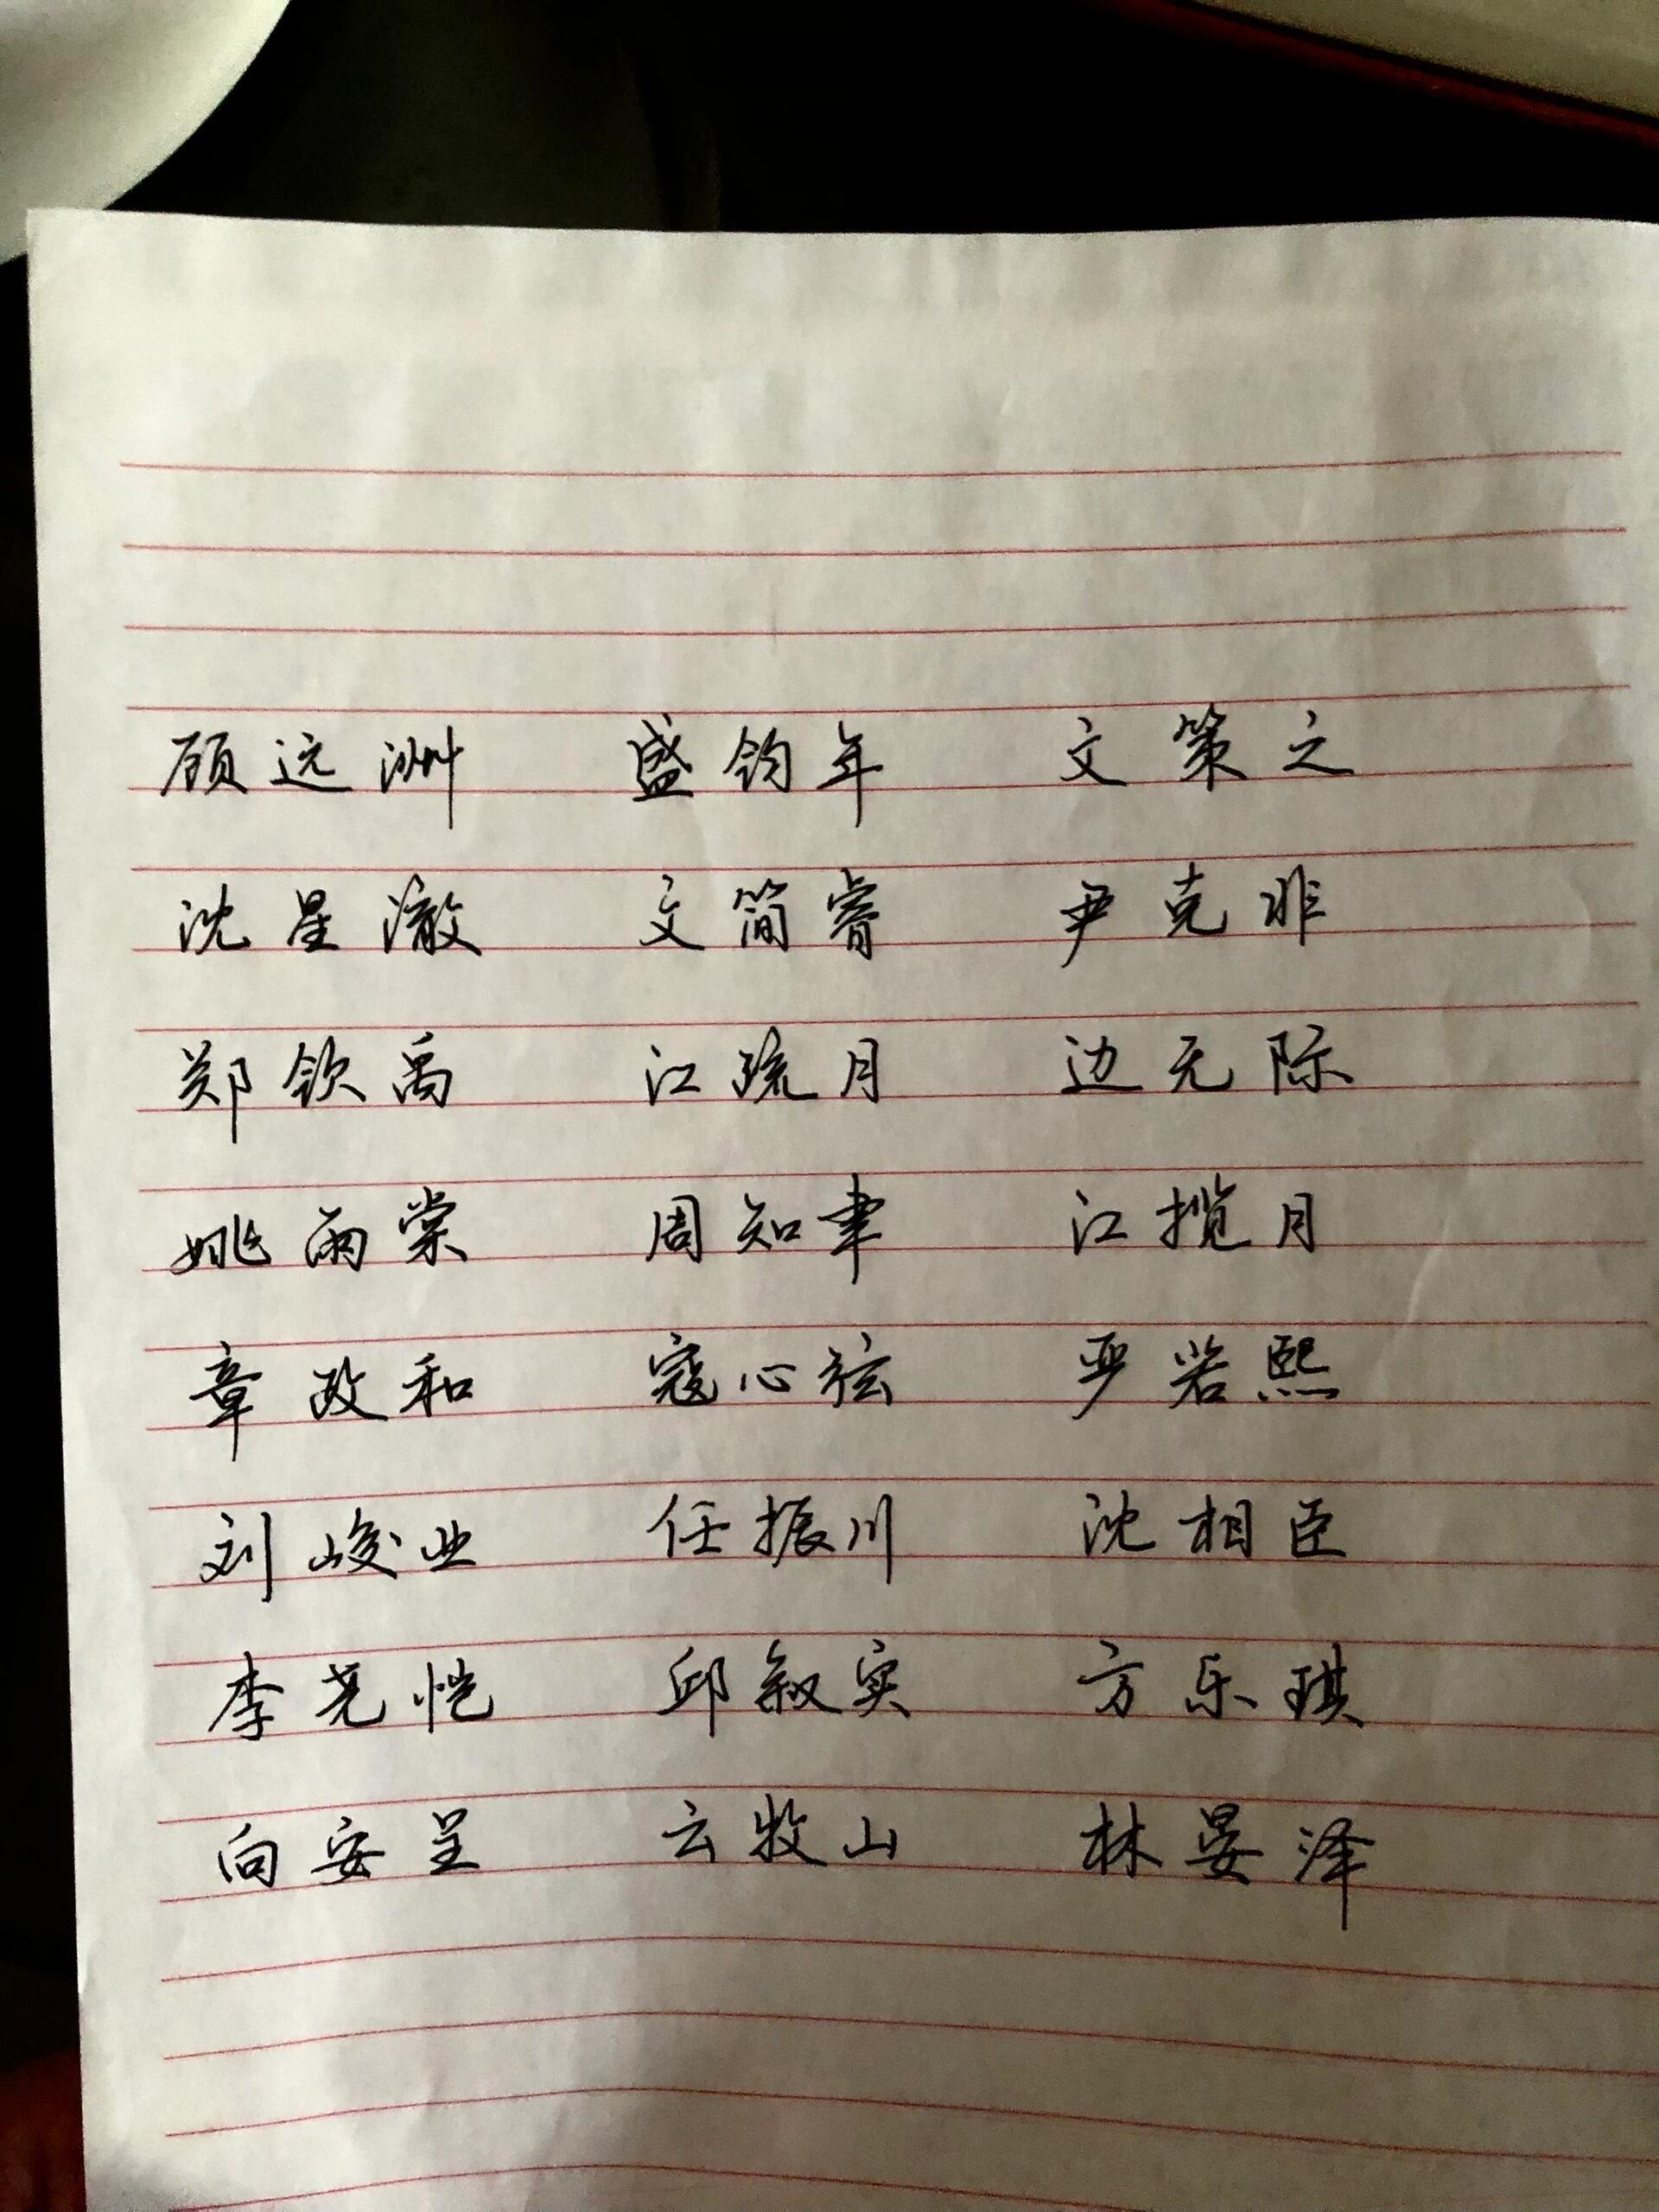 顾远洲 盛钧年 文策之
沈星澈 文简睿 尹克非
郑钦禹 江疏月 边无际
姚雨棠 周知聿 江揽月
章政和 寇心弦 严若熙
刘峻业 任振川 沈相臣
李尧恺 邱叙实 方乐琪
向安呈 云牧山 林晏泽